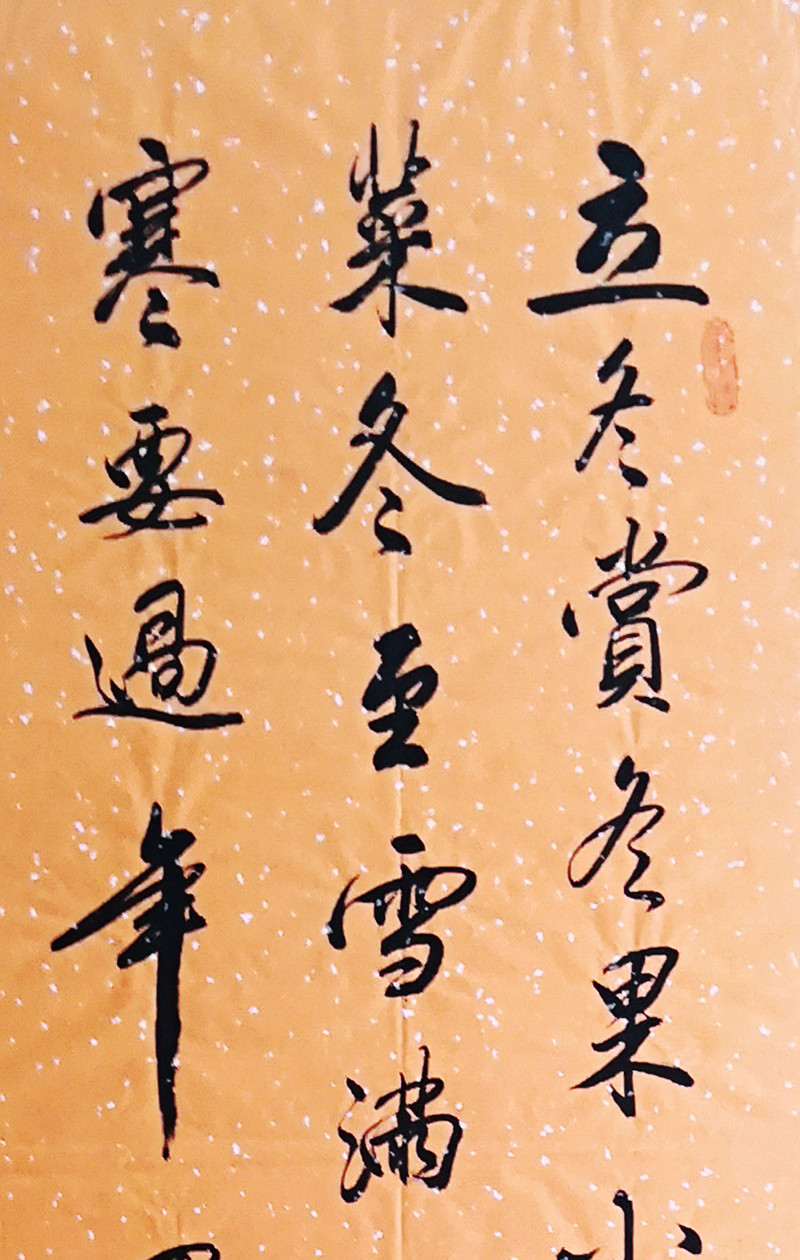 立冬賞冬果
菜冬至雪滿
寒要過年